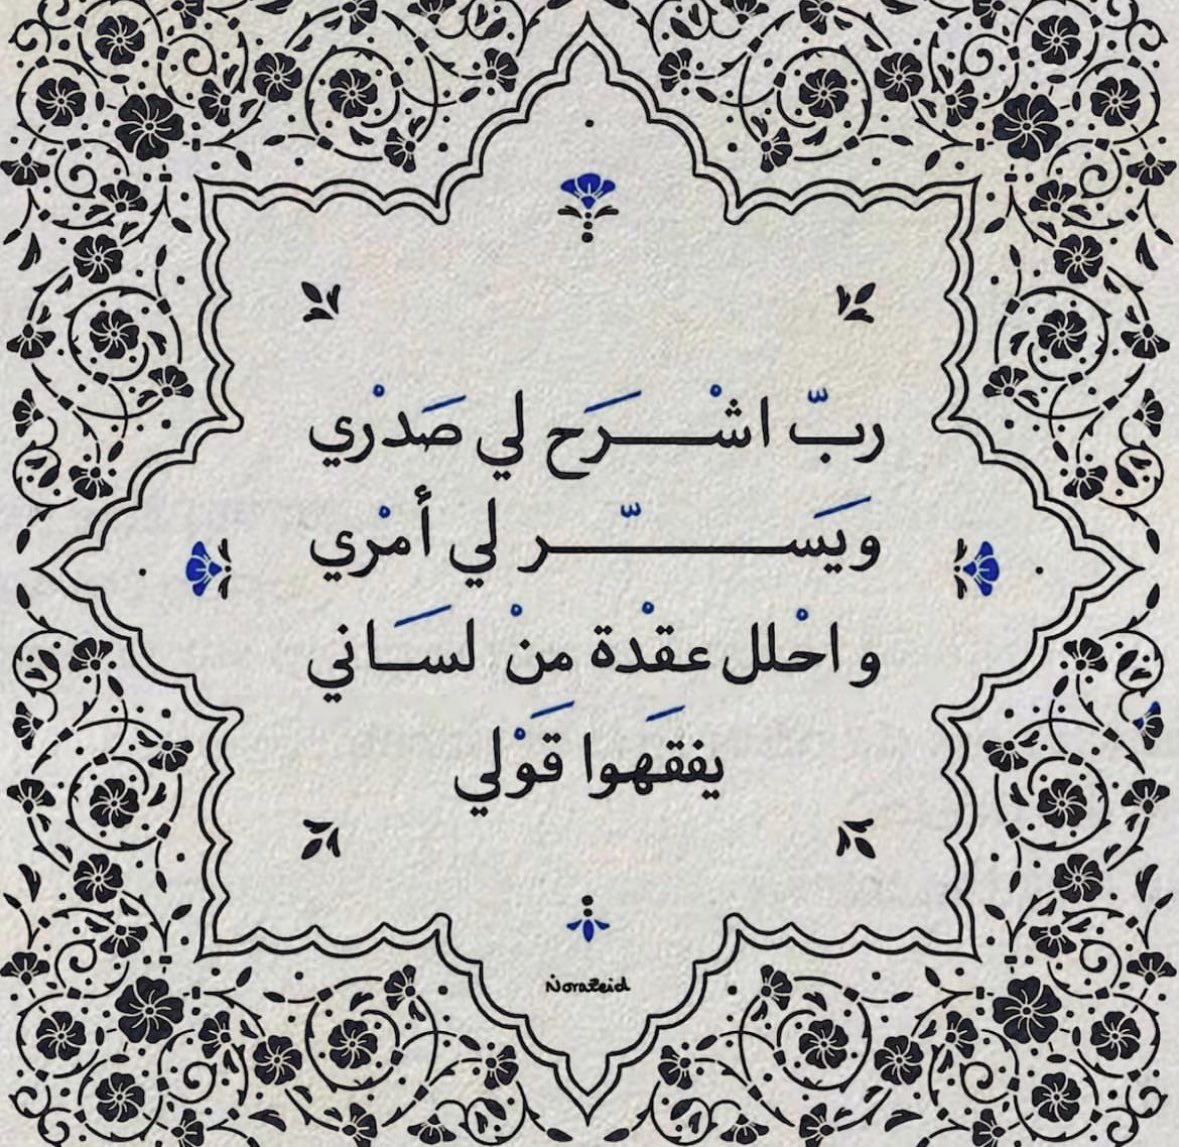 ربّ اشْرَح لي صَدْري
ويَسّر لي أمْري
و احْلل عقْدة منْ لسَاني
يفقَهوا قَوْلي
NoraZeid